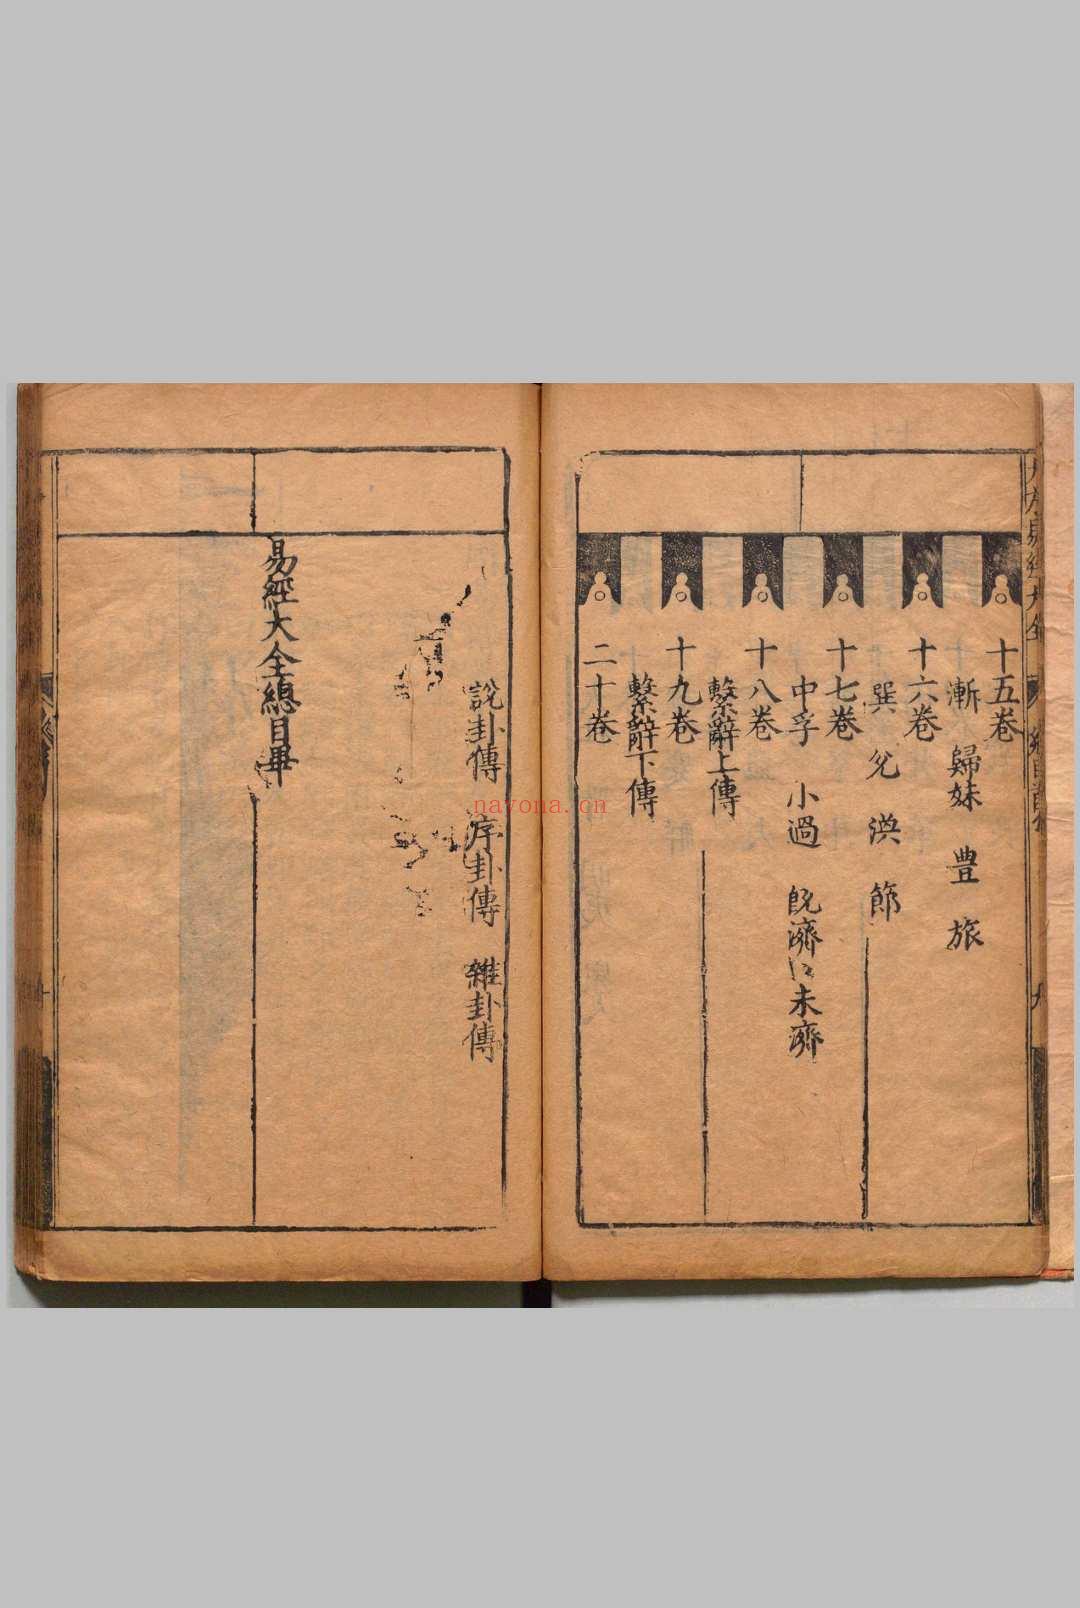 十五卷
漸 歸妹 豊 旅
十六卷
巽 兊 渙 節
十七卷
中孚 小過 旣濟 未濟
十八卷
繫辭上傳
十九卷
繫辭下傳
二十卷
說卦傳 序卦傳 雜卦傳
易經大全總目畢
nayona.cn